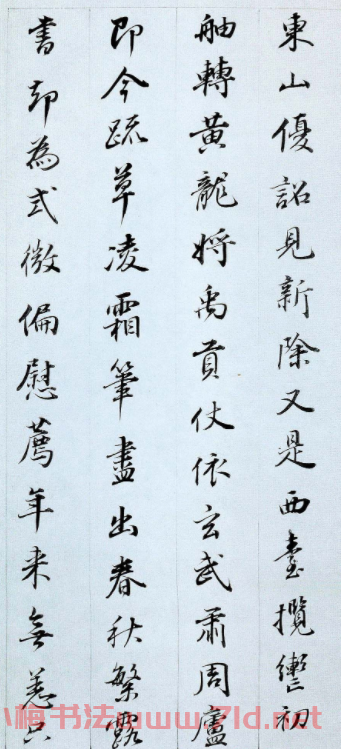 東山優詔見新除又是西臺攬轡初
舳轉黃龍將禹貢仗依玄武肅周廬
即今疏草凌霜筆盡出春秋繁露
書却為式微偏慰薦年來無恙只
小梅书法www.7ld.net